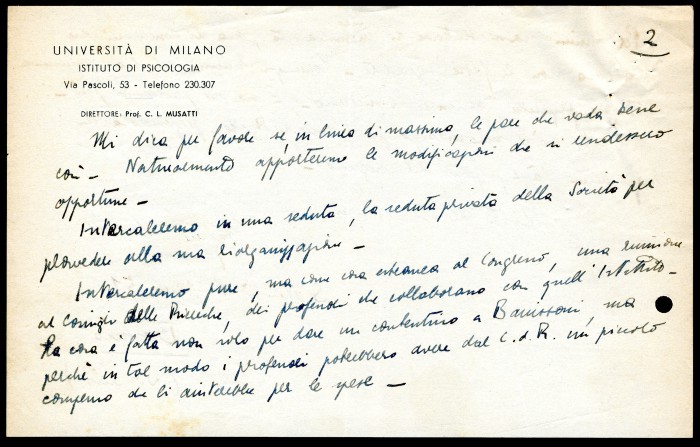 2
UNIVERSITÀ DI MILANO
ISTITUTO DI PSICOLOGIA
Via Pascoli, 53 - Telefono 230.307
DIRETTORE: Prof. C. L. MUSATTI
Mi dica per favore se, in linea di massima, le pare che vada bene
così - Naturalmente apporteremo le modificazioni che si rendessero
opportune -
Intercaleremo in una seduta, la seduta privata della Società per
provvedere alla sua riorganizzazione -
Intercaleremo pure, ma come cosa estranea al Congresso, una riunione
al Consiglio delle Ricerche, dei professori che collaborano con quell'Istituto -
La cosa è fatta non solo per dare un contentino a Banissoni, ma
perché in tal modo i professori potrebbero avere dal C.d.R. un piccolo
compenso che li aiuterebbe per le spese -